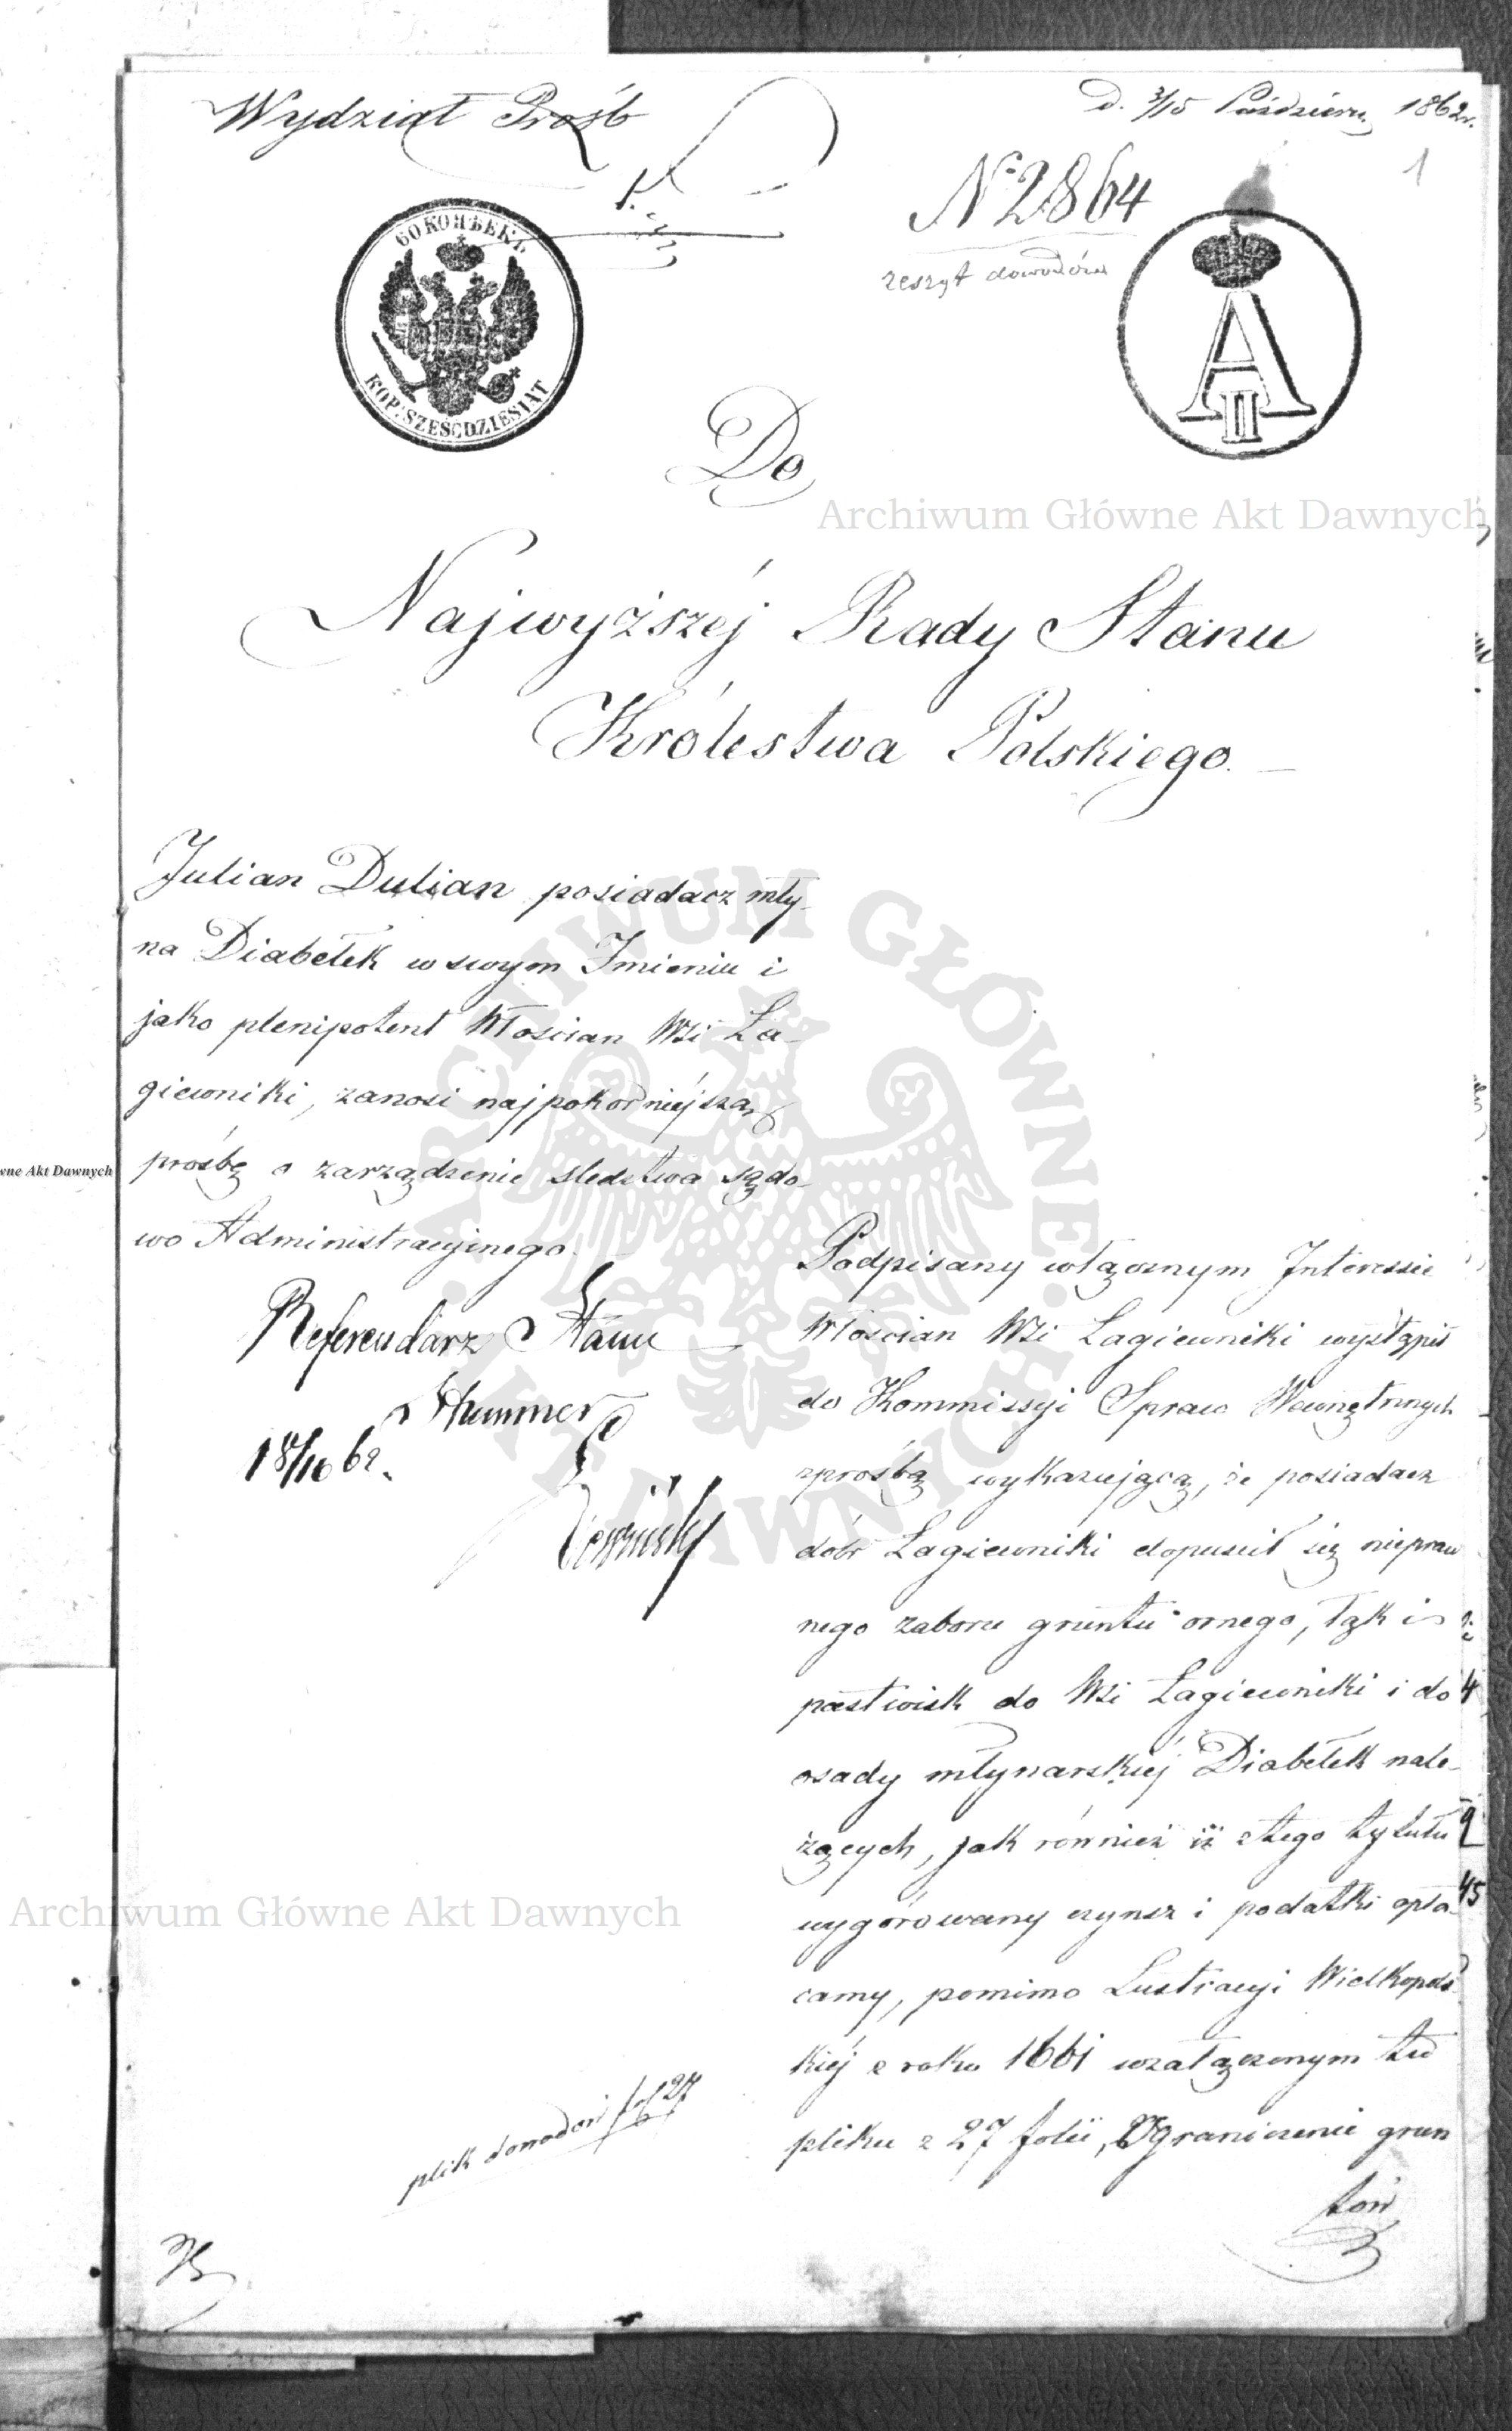 Wydział Próśb
D. 3/15 Paździer. 1862 r.
1
N° 2864
zeszyt dowodów
60 КОПѢЕКЪ.
KOP: SZESĆDZIESIĄT
A II
Do
Najwyższéj Rady Stanu
Królestwa Polskiego.
Julian Dulian posiadacz mły-
na Diabełek w swym Imieniu i
jako plenipotent Włoscian Wsi La-
giewniki, zanosi najpokorniéjszą
prośbę o zarządzenie sledztwa sądo-
wo Administracyjnego.
Referendarz Stanu
18/10 62.
Podpisany włącznym Interessie
Włoscian Wsi Lagiewniki wystąpił
do Kommissyi Spraw Wewnętrznych
zprośbą wykazującą, że posiadacz
dóbr Lagiewniki dopuscił się nepraw
nego zaboru gruntu ornego, łąk i
pastwisk do Wsi Łagiewniki i do
osady młynarskiéj Diabełek nale-
żących, jak również iż ztego tytułu
wygórowany czynsz i podatki opła-
camy, pomimo Lustracyi Wielkopols-
kiéj z roku 1661 wzałączonym tu
pliku z 27 folii, Ograniczenie grun
tów
plik dowodów fol 27
Archiwum Główne Akt Dawnych
ARCHIWUM GŁÓWNE AKT DAWNYCH
wne Akt Dawnych
Archiwum Główne Akt Dawnych